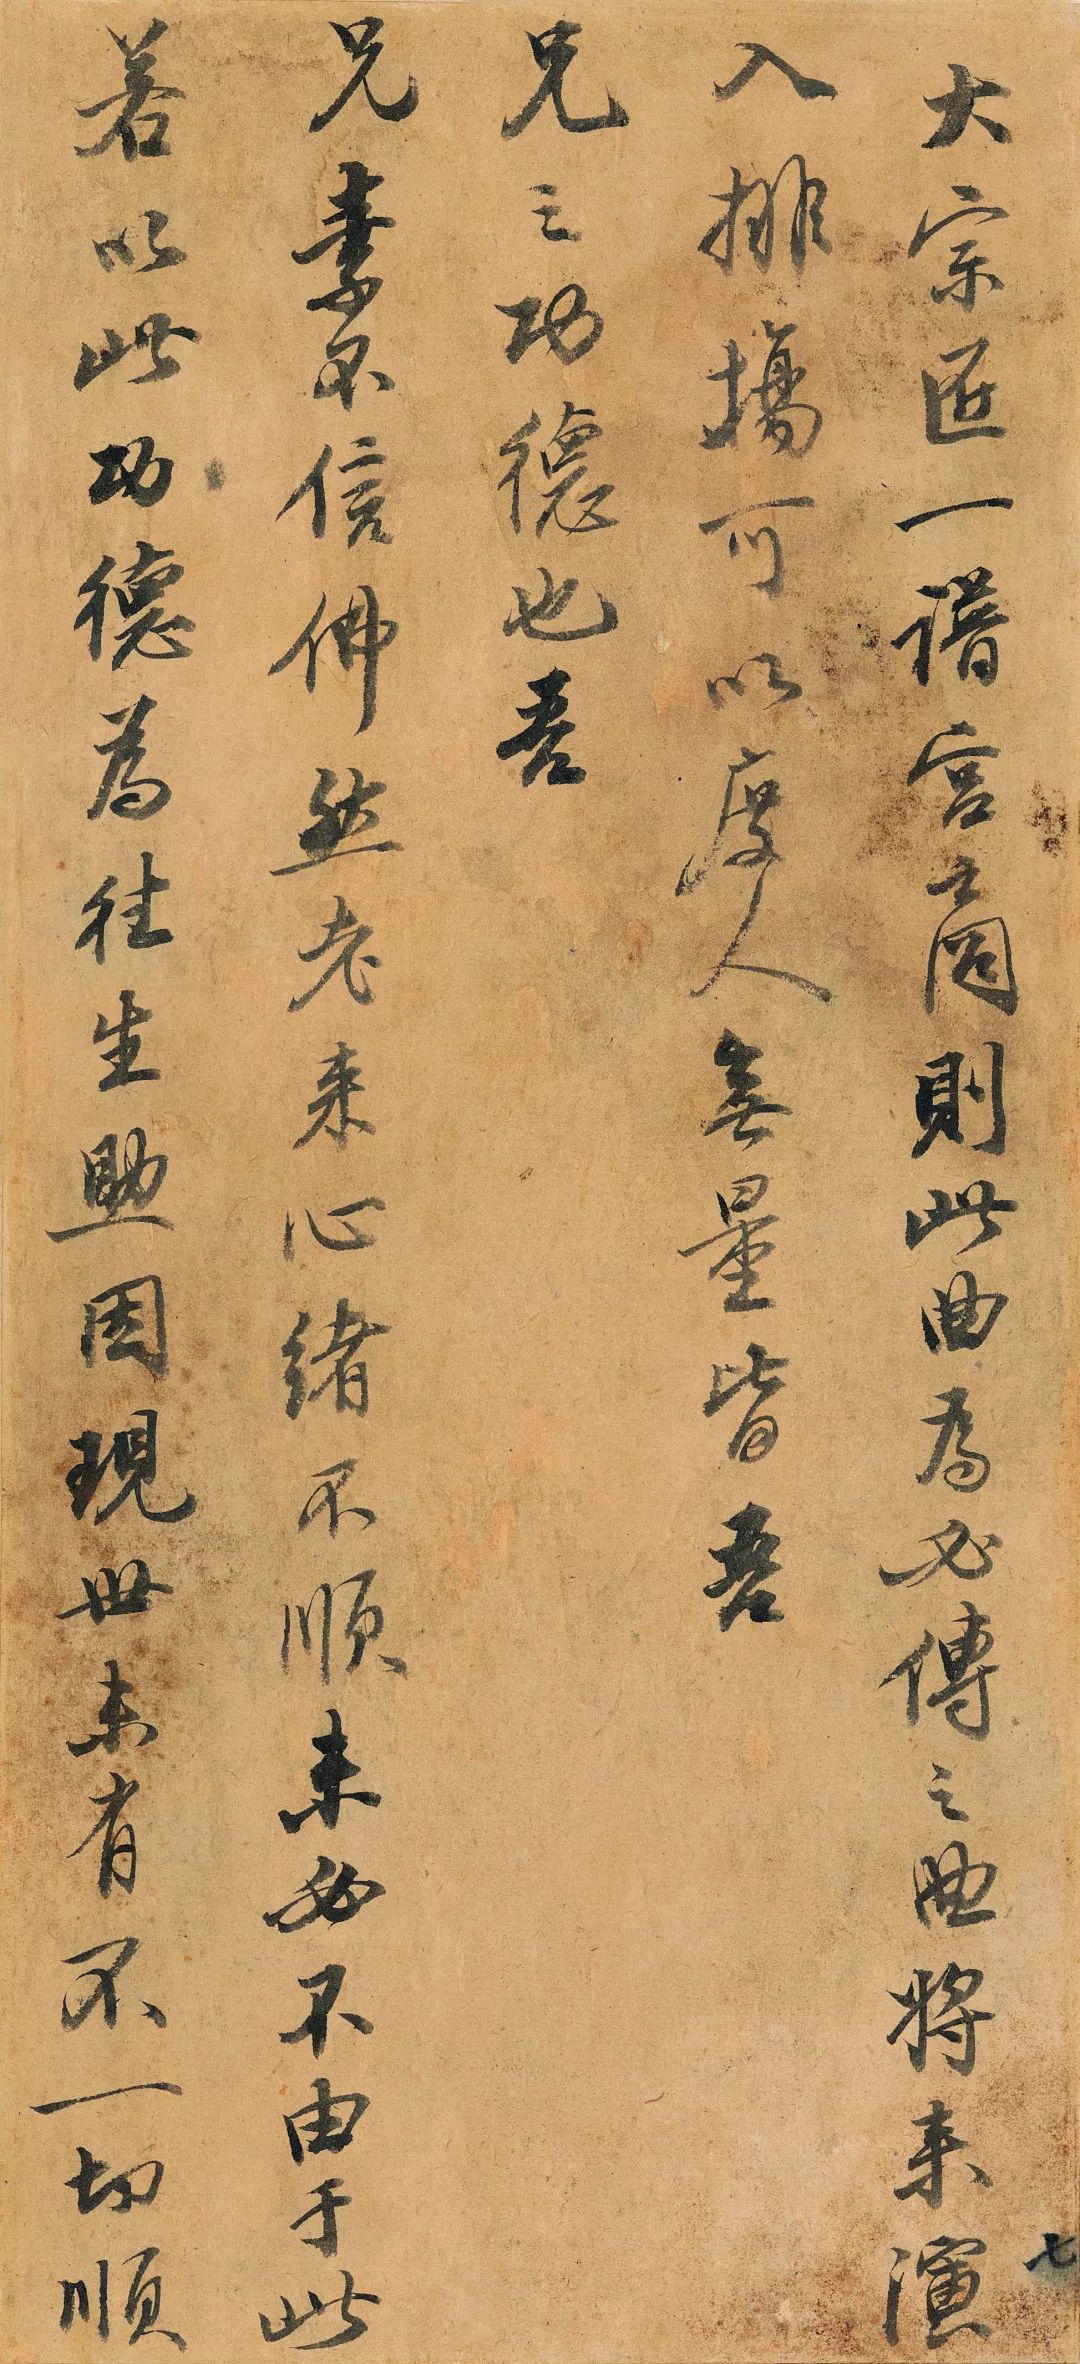 大宗匠一譜宮商則此曲為必傳之曲將来演
入排場可以度人無量皆吾
兄之功德也吾
兄素不信佛然老来心緒不順未必不由于此
若以此功德為往生助因現世未有不一切順
七